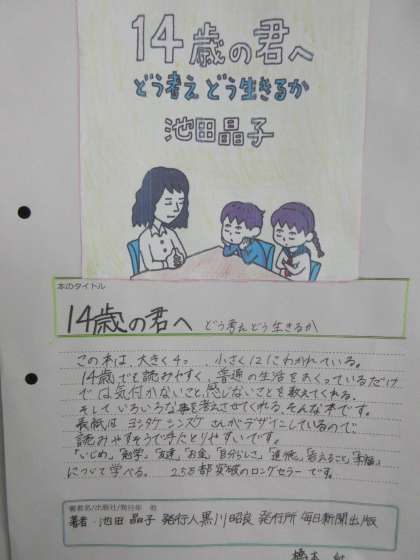 14歳の君へ
どう考えどう生きるか
池田晶子
本のタイトル
14歳の君へ どう考えどう生きるか
この本は、大きく4つ、小さく12にわかれている。
14歳でも読みやすく、普通の生活をおくっているだけ
では気付かないこと、感じないことを教えてくれる。
そしていろいろな事を考えさせてくれる、そんな本です。
表紙は ヨシタケ シンスケ さんがデザインしているので、
読みやすそうで手にとりやすいです。
「いじめ」「勉学」「友達」「お金」「自分らしさ」「道徳」「考えること」「幸福」
について学べる。 25万部突破のロングセラーです。
著者名/出版社/発行年 他
著者・池田 晶子 発行人 黒川昭良 発行所 毎日新聞出版